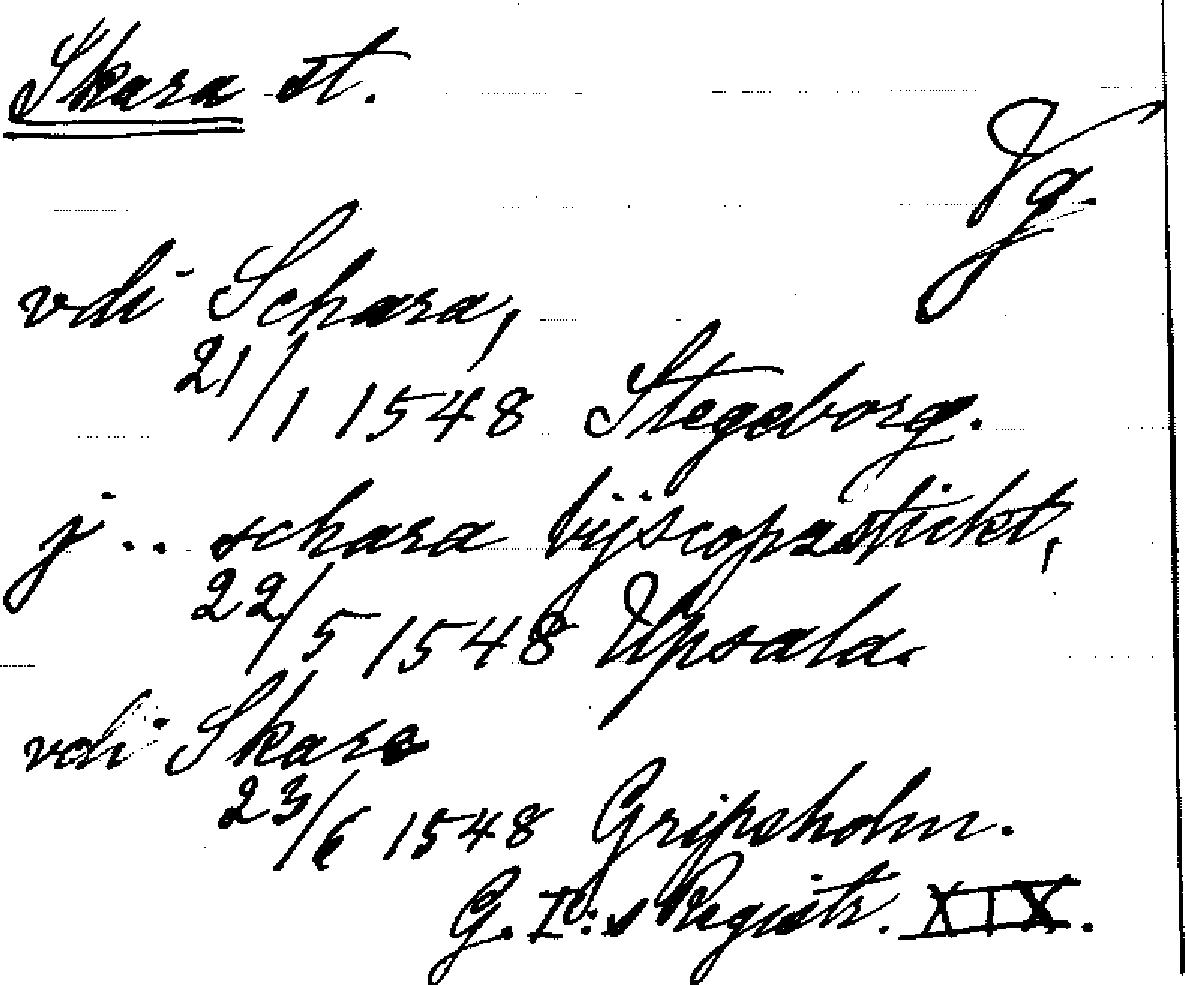 Skara st.
Vg.
vdi Schara,
21/1 1548 Stegeborg.
j .. schara bijscopzstickt,
22/5 1548 Upsala.
vdi Skara
23/6 1548 Gripsholm.
G. I:s Registr. XIX.